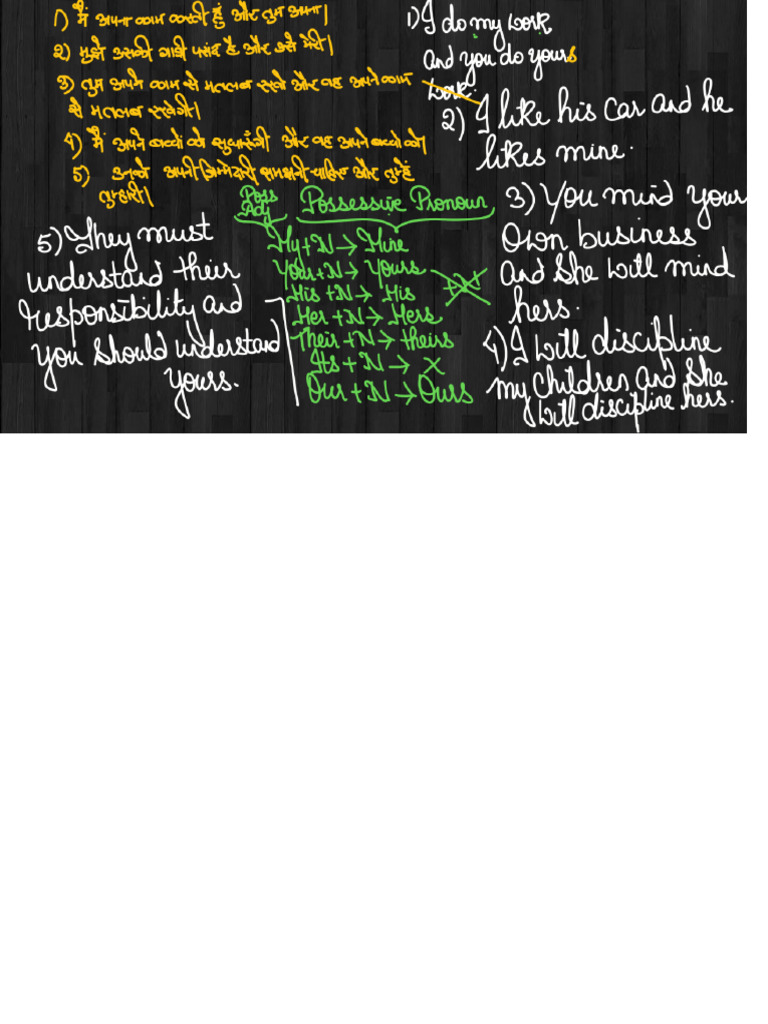 1) मैं अपना काम करती हूं और तुम अपना।
2) मुझे उसकी गाड़ी पसंद है और उसे मेरी।
3) तुम अपने काम से मतलब रखो और वह अपने काम
से मतलब रखेगी।
4) मैं अपने बच्चों को सुधारूंगी और वह अपने बच्चों को।
5) उनको अपनी जिम्मेदारी समझनी चाहिए और तुम्हें
तुम्हारी।
1) I do my work
and you do yours
work.
2) I like his car and he
likes mine.
3) You mind your
own business
and she will mind
hers.
4) I will discipline
my children and she
will discipline hers.
5) They must
understand their
responsibility and
you should understand
yours.
Poss
Adj
Possessive Pronoun
My+N → Mine
Your+N → Yours
His +N → His
Her +N → Hers
Their+N → theirs
Its + N → x
Our + N → Ours